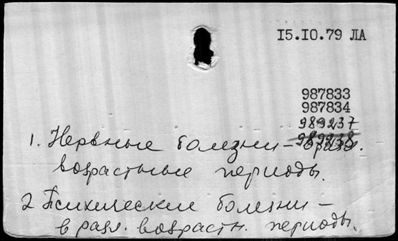 15.10.79 ЛА
987833
987834
989237
989238
1. Нервные болезни –
возрастные периоды.
2 Психические болезни –
в разл. возрастн. периоды.